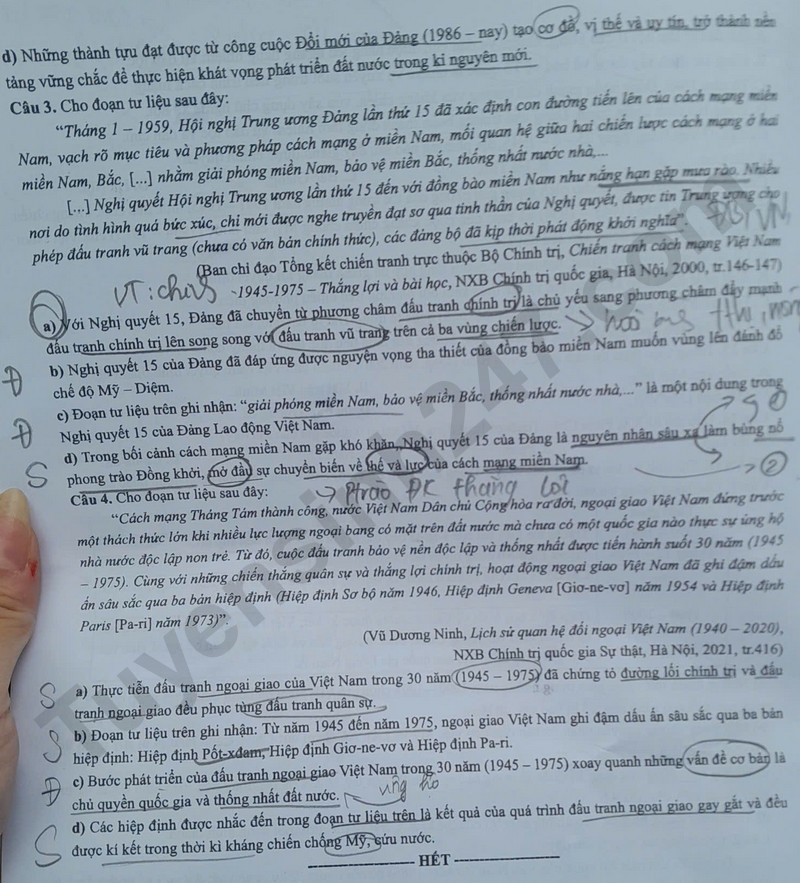 d) Những thành tựu đạt được từ công cuộc Đổi mới của Đảng (1986 – nay) tạo cơ đồ, vị thế và uy tín, trở thành nền
tảng vững chắc để thực hiện khát vọng phát triển đất nước trong kỉ nguyên mới.
Câu 3. Cho đoạn tư liệu sau đây:
“Tháng 1 – 1959, Hội nghị Trung ương Đảng lần thứ 15 đã xác định con đường tiến lên của cách mạng miền
Nam, vạch rõ mục tiêu và phương pháp cách mạng ở miền Nam, mối quan hệ giữa hai chiến lược cách mạng ở hai
miền Nam, Bắc, [...] nhằm giải phóng miền Nam, bảo vệ miền Bắc, thống nhất nước nhà,...
[...] Nghị quyết Hội nghị Trung ương lần thứ 15 đến với đồng bào miền Nam như nắng hạn gặp mưa rào. Nhiều
nơi do tình hình quá bức xúc, chỉ mới được nghe truyền đạt sơ qua tinh thần của Nghị quyết, được tin Trung ương cho
phép đấu tranh vũ trang (chưa có văn bản chính thức), các đảng bộ đã kịp thời phát động khởi nghĩa”.
(Ban chỉ đạo Tổng kết chiến tranh trực thuộc Bộ Chính trị, Chiến tranh cách mạng Việt Nam
1945-1975 – Thắng lợi và bài học, NXB Chính trị quốc gia, Hà Nội, 2000, tr.146-147)
VT:
a) Với Nghị quyết 15, Đảng đã chuyển từ phương châm đấu tranh chính trị là chủ yếu sang phương châm đẩy mạnh
đấu tranh chính trị lên song song với đấu tranh vũ trang trên cả ba vùng chiến lược.
Đ b) Nghị quyết 15 của Đảng đã đáp ứng được nguyện vọng tha thiết của đồng bào miền Nam muốn vùng lên đánh đổ
chế độ Mỹ – Diệm.
Đ c) Đoạn tư liệu trên ghi nhận: “giải phóng miền Nam, bảo vệ miền Bắc, thống nhất nước nhà,...” là một nội dung trong
Nghị quyết 15 của Đảng Lao động Việt Nam.
S d) Trong bối cảnh cách mạng miền Nam gặp khó khăn, Nghị quyết 15 của Đảng là nguyên nhân sâu xa làm bùng nổ
phong trào Đồng khởi, mở đầu sự chuyển biến về thế và lực của cách mạng miền Nam.
S ①
②
Câu 4. Cho đoạn tư liệu sau đây:
→ Ptrào ĐK thắng lợi
“Cách mạng Tháng Tám thành công, nước Việt Nam Dân chủ Cộng hòa ra đời, ngoại giao Việt Nam đứng trước
một thách thức lớn khi nhiều lực lượng ngoại bang có mặt trên đất nước mà chưa có một quốc gia nào thực sự ủng hộ
nhà nước độc lập non trẻ. Từ đó, cuộc đấu tranh bảo vệ nền độc lập và thống nhất được tiến hành suốt 30 năm (1945
– 1975). Cùng với những chiến thắng quân sự và thắng lợi chính trị, hoạt động ngoại giao Việt Nam đã ghi đậm dấu
ấn sâu sắc qua ba bản hiệp định (Hiệp định Sơ bộ năm 1946, Hiệp định Geneva [Giơ-ne-vơ] năm 1954 và Hiệp định
Paris [Pa-ri] năm 1973)”.
(Vũ Dương Ninh, Lịch sử quan hệ đối ngoại Việt Nam (1940 – 2020),
NXB Chính trị quốc gia Sự thật, Hà Nội, 2021, tr.416)
S a) Thực tiễn đấu tranh ngoại giao của Việt Nam trong 30 năm (1945 – 1975) đã chứng tỏ đường lối chính trị và đấu
tranh ngoại giao đều phục tùng đấu tranh quân sự.
S b) Đoạn tư liệu trên ghi nhận: Từ năm 1945 đến năm 1975, ngoại giao Việt Nam ghi đậm dấu ấn sâu sắc qua ba bản
hiệp định: Hiệp định Pốt-xđam, Hiệp định Giơ-ne-vơ và Hiệp định Pa-ri.
Đ c) Bước phát triển của đấu tranh ngoại giao Việt Nam trong 30 năm (1945 – 1975) xoay quanh những vấn đề cơ bản là
chủ quyền quốc gia và thống nhất đất nước.
ủng hộ
S d) Các hiệp định được nhắc đến trong đoạn tư liệu trên là kết quả của quá trình đấu tranh ngoại giao gay gắt và đều
được kí kết trong thời kì kháng chiến chống Mỹ, cứu nước.
HẾT
Tuyensinh247.com